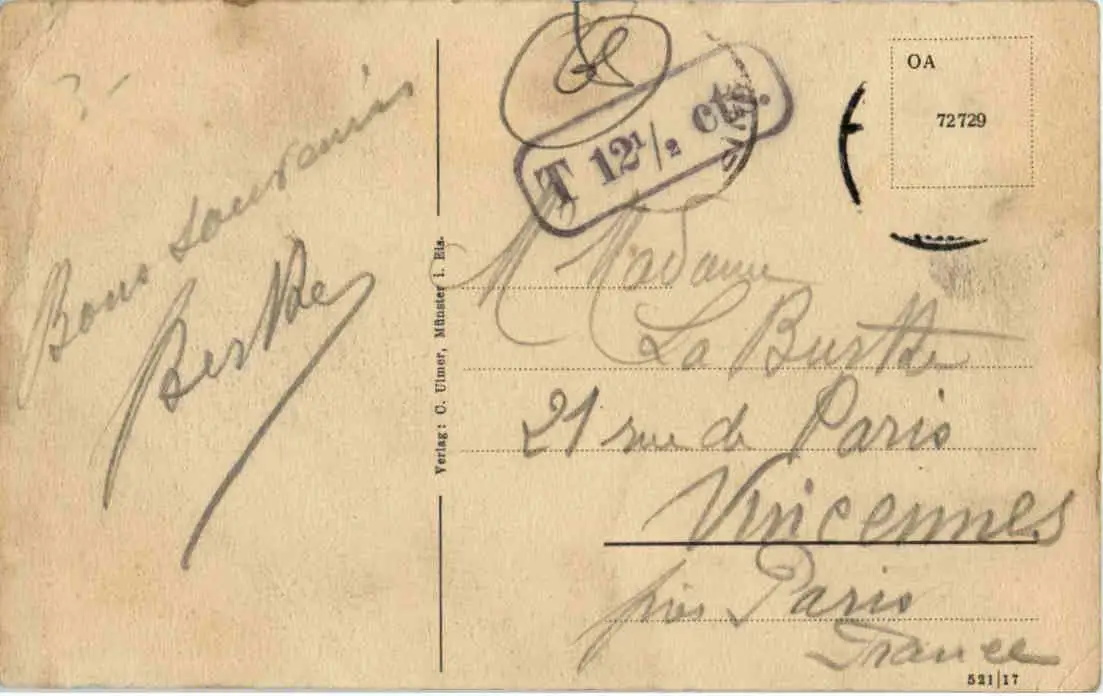 Bons Souvenirs
Berthe
Verlag: C. Ulmer, Münster i. Els.
T 12 1/2 cts.
OA
72729
Madame
La Burthe
21 rue de Paris
Vincennes
près Paris
France
521|17